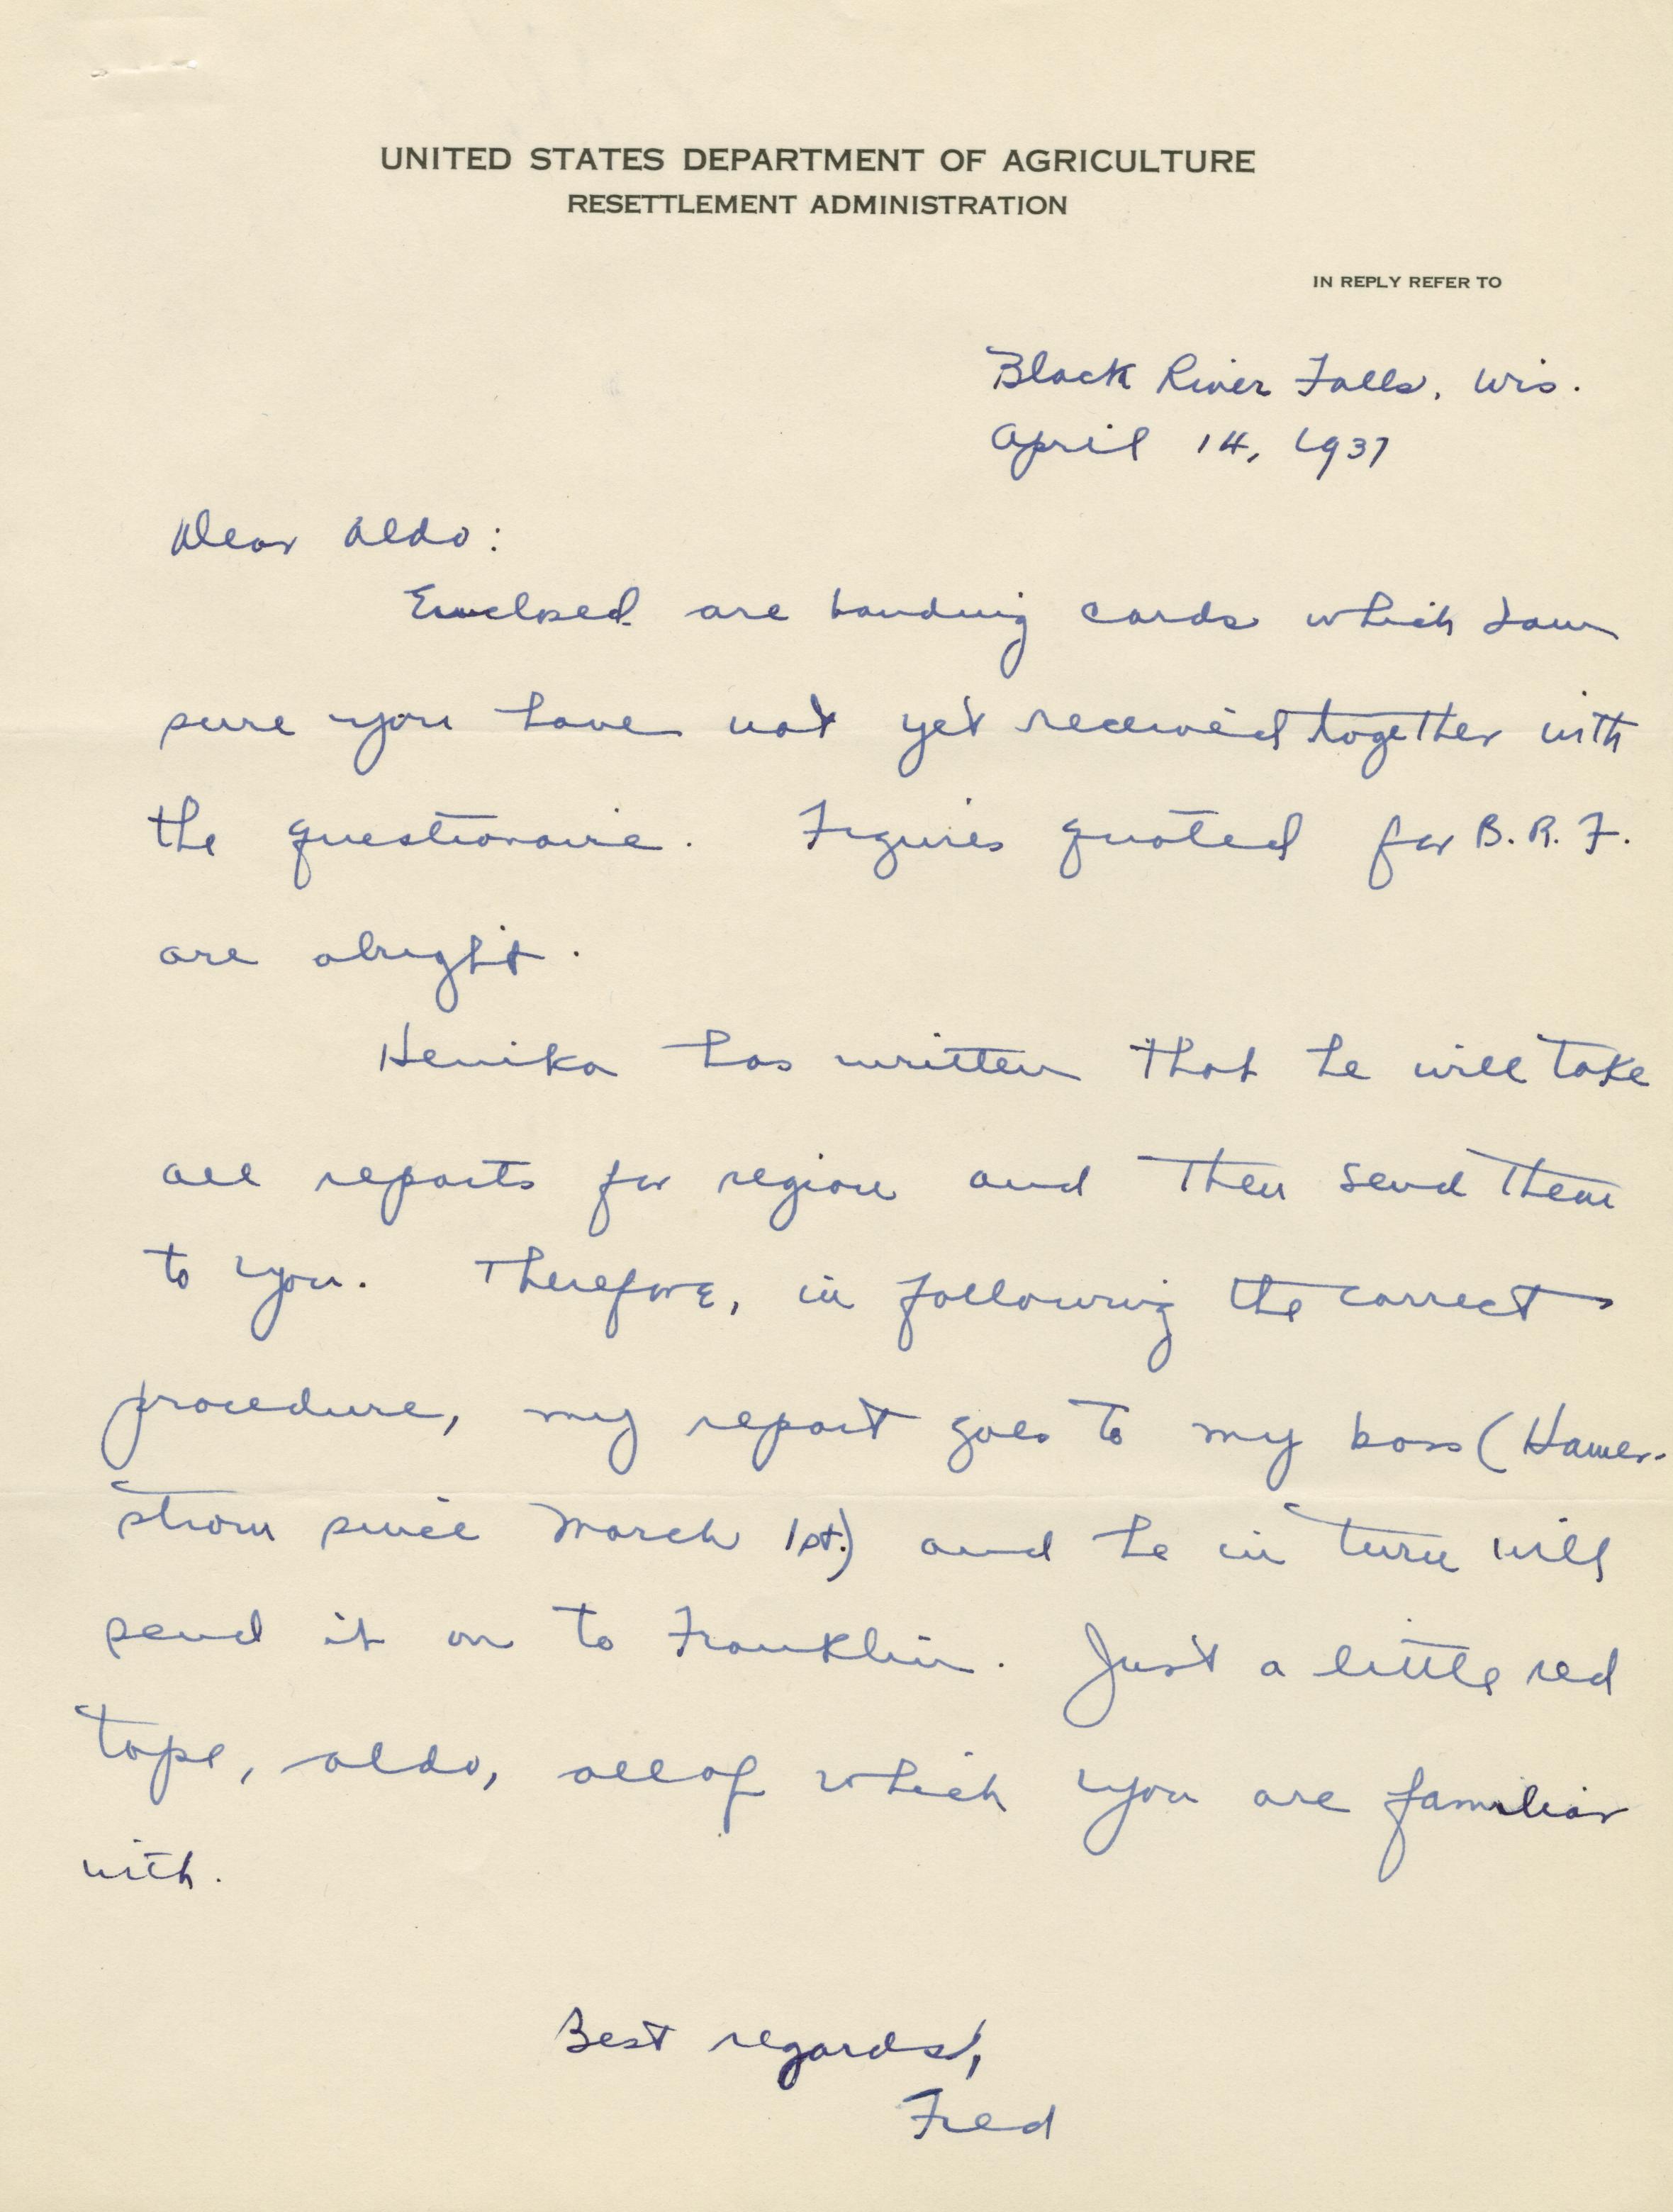 UNITED STATES DEPARTMENT OF AGRICULTURE
RESETTLEMENT ADMINISTRATION
IN REPLY REFER TO
Black River Falls, Wis.
April 14, 1937
Dear Aldo:
Enclosed are banding cards which I am
sure you have not yet received together with
the questionaire. Figures quoted for B.R.F.
are alright.
Henika has written that he will take
all reports for region and then send them
to you. Therefore, in following the correct
procedure, my report goes to my boss (Hamer-
strom since March 1st.) and he in turn will
send it on to Franklin. Just a little red
tape, Aldo, all of which you are familiar
with.
Best regards,
Fred